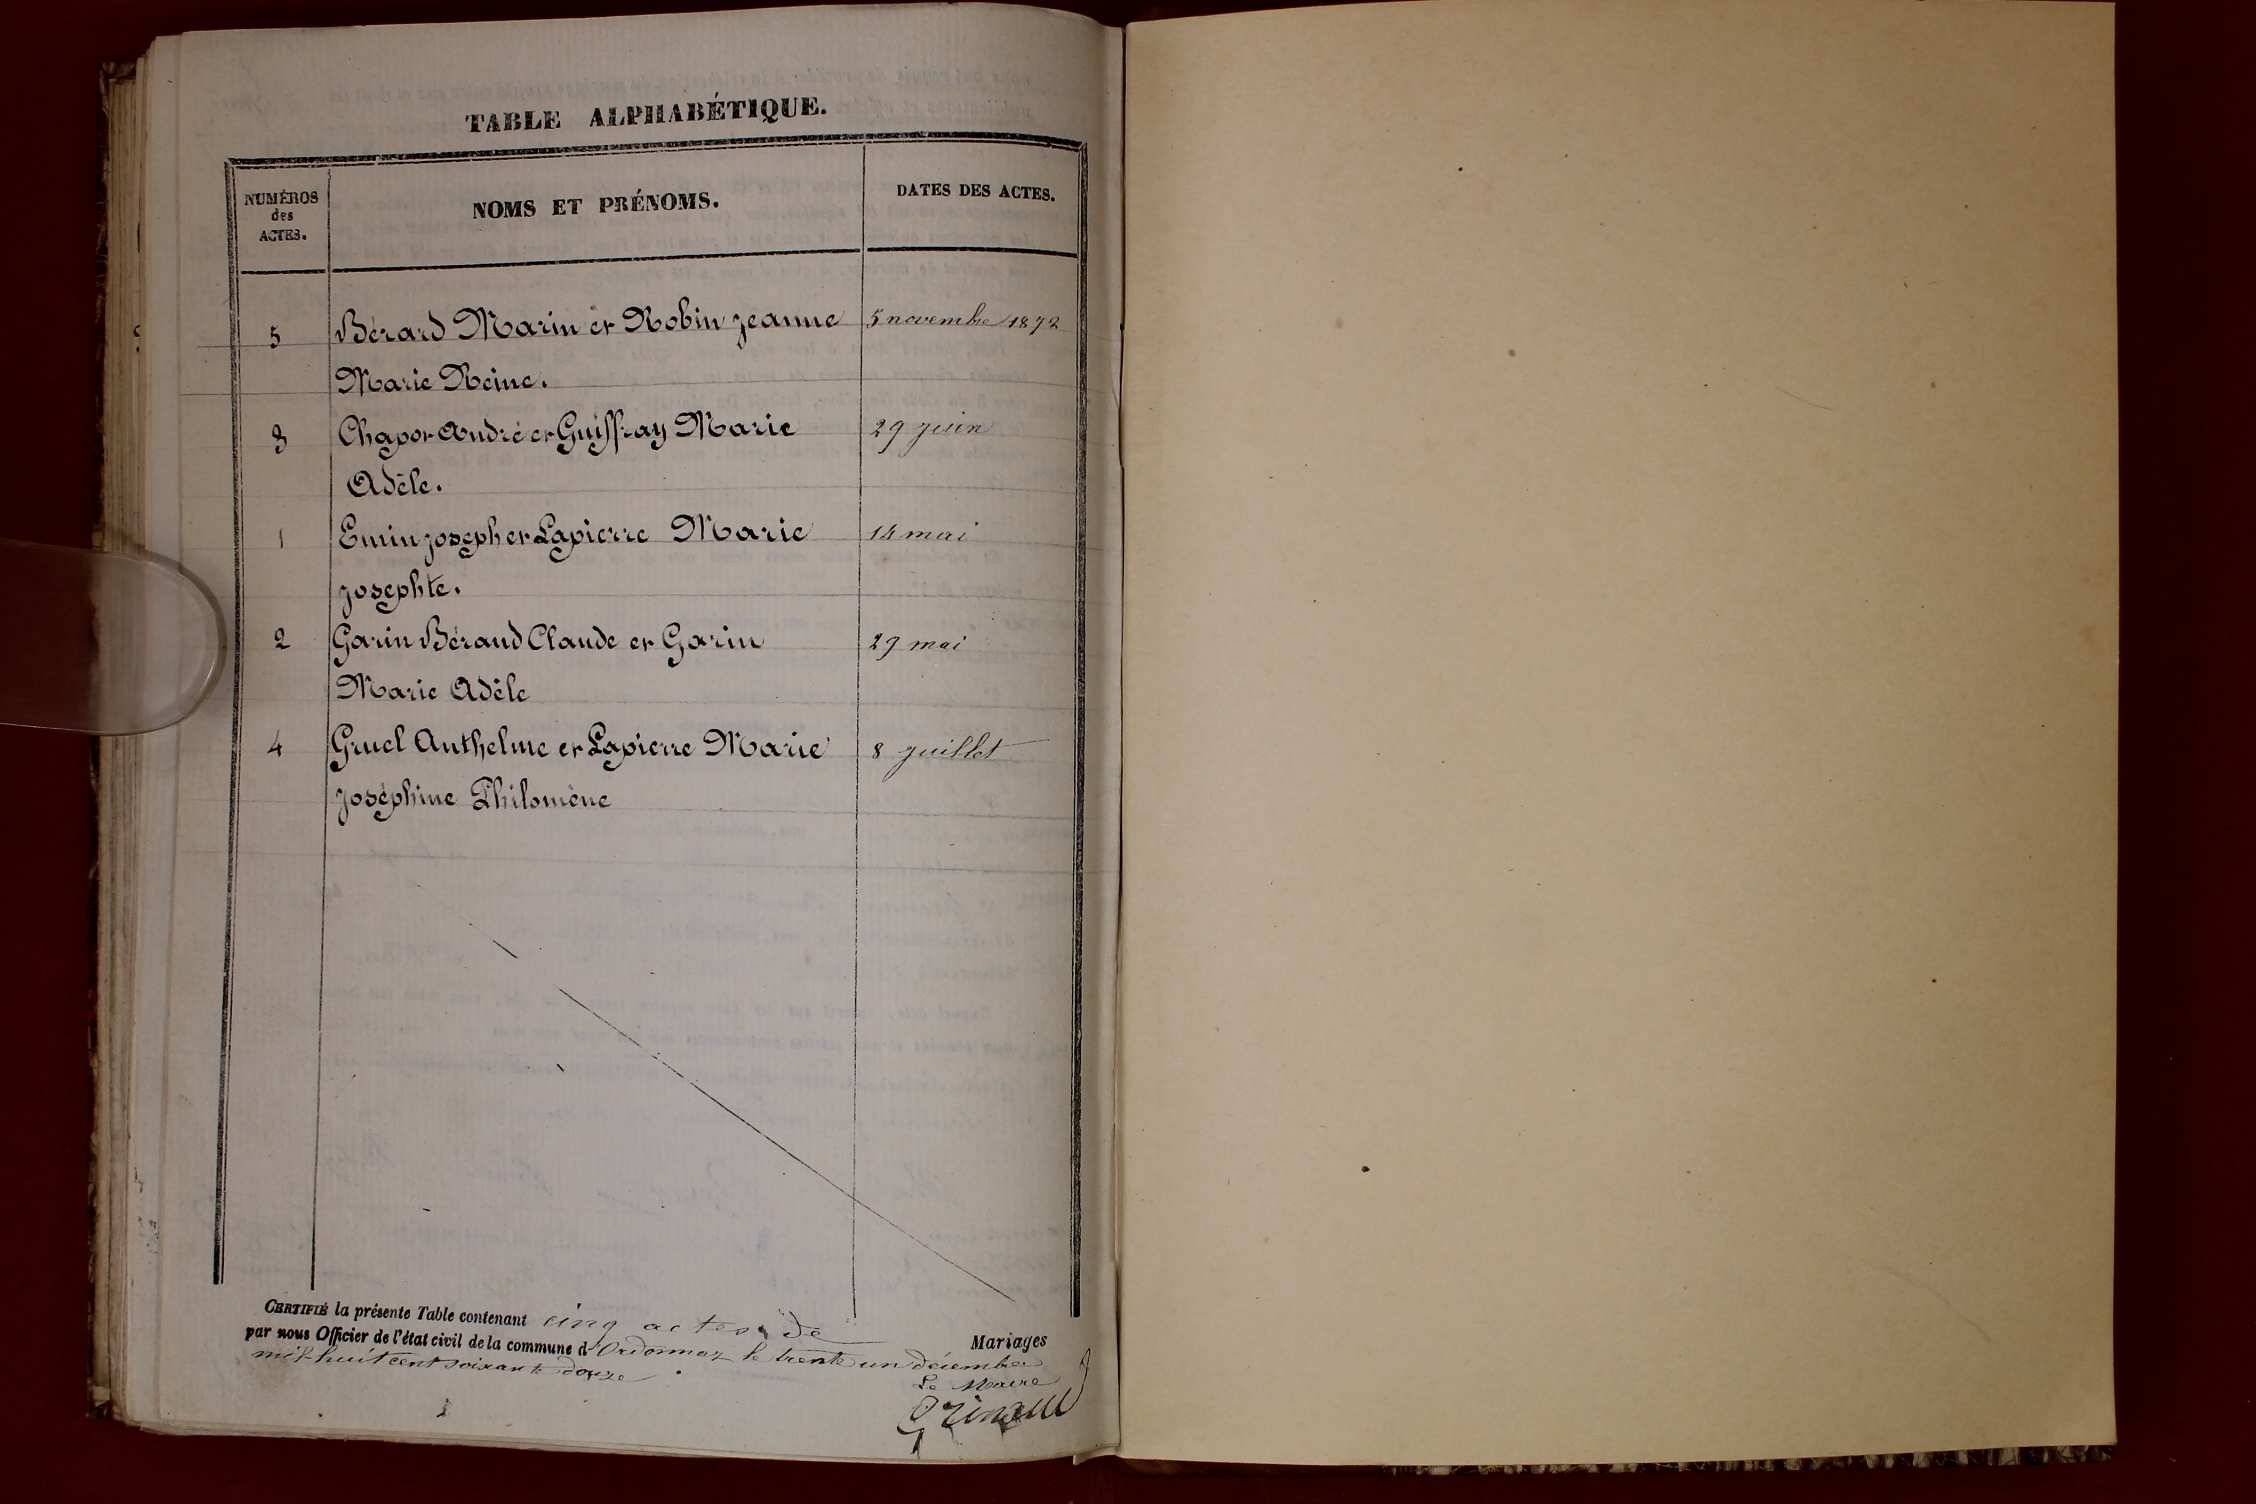 TABLE ALPHABÉTIQUE.
NUMÉROS des ACTES.
NOMS ET PRÉNOMS.
DATES DES ACTES.
5 Bérard Marin et Robin Jeanne 5 novembre 1872
Marie Reine.
3 Chapot André et Guiffray Marie 29 Juin
Adèle.
1 Emin Joseph et Lapierre Marie 14 mai
Josephte.
2 Garin Béraud Claude et Garin 29 mai
Marie Adèle
4 Gruel Anthelme et Lapierre Marie 8 juillet
Joséphine Philomène
CERTIFIÉ la présente Table contenant cinq actes de Mariages
par nous Officier de l'état civil de la commune d'Ordonnaz le trente un décembre
mil huit cent soixante douze.
Le Maire